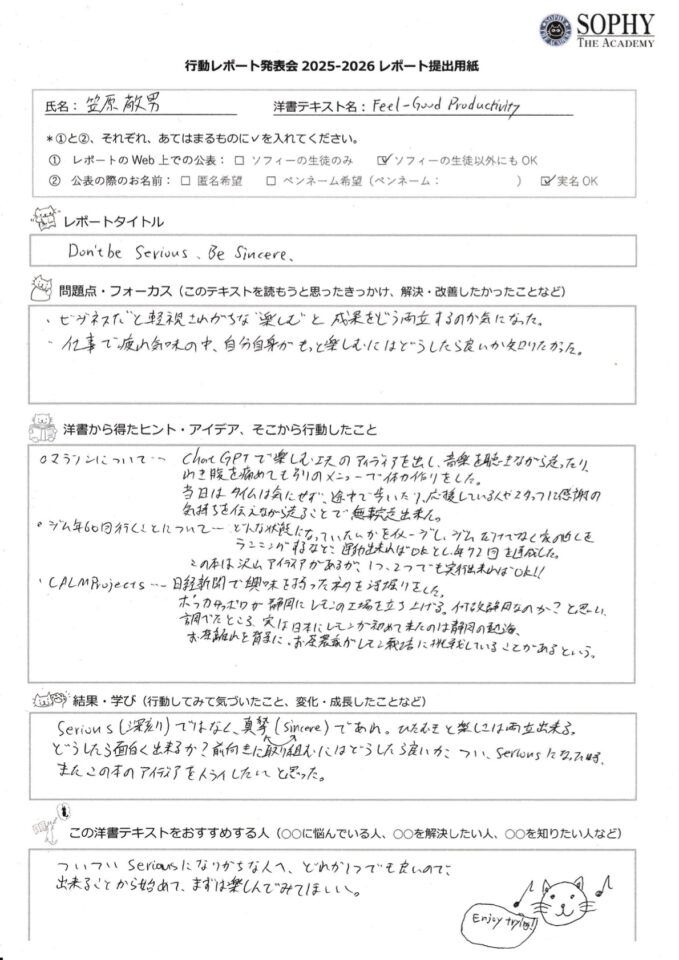 SOPHY
THE ACADEMY
行動レポート発表会 2025-2026 レポート提出用紙
氏名： 笠原 敵男 洋書テキスト名： Feel-Good Productivity
＊①と②、それぞれ、あてはまるものに✓を入れてください。
① レポートの Web 上での公表： □ ソフィーの生徒のみ ☑ ソフィーの生徒以外にも OK
② 公表の際のお名前： □ 匿名希望 □ ペンネーム希望（ペンネーム： ） ☑ 実名 OK
レポートタイトル
Don't be Serious、Be Sincere、
問題点・フォーカス（このテキストを読もうと思ったきっかけ、解決・改善したかったことなど）
・ビジネスだと軽視されがちな"楽しむ"と成果をどう両立するのか気になった。
・仕事で疲れ気味の中、自分自身がもっと楽しむにはどうしたら良いか知りたかった。
洋書から得たヒント・アイデア、そこから行動したこと
○マラソンについて… ChatGPTで楽しむ工夫のアイディアを出し、音楽を聴きながら走ったり、
脹ら脛を痛めても別のメニューで体力作りをした。
当日はタイムは気にせず、途中で歩いたり、応援している人やスタッフに感謝の
気持ちを伝えながら走ることで無事完走出来た。
○ジム年60回行くことについて… どんな状態になっていたいかをイメージし、ジムだけでなく家の近くを
ランニングするなど、運動出来ればOKとし、年72回を達成した。
この本は沢山アイデアがあるが、1つ、2つでも実行出来ればOK!!
・CALM Projects … 日経新聞で興味を持った物を深掘りをした。
ポッカサッポロが静岡にレモンの工場を立ち上げる。何故静岡なのか？と思い、
調べたところ、実は日本にレモンが初めて来たのは静岡の熱海、
お茶離れを背景に、お茶農家がレモン栽培に挑戦していることがあるという。
結果・学び（行動してみて気づいたこと、変化・成長したことなど）
Serious（深刻）ではなく、真摯（sincere）であれ。ひたむきと楽しさは両立出来る。
どうしたら面白く出来るか？前向きに取り組むにはどうしたら良いか、つい、Seriousになった時、
またこの本のアイディアをトライしたいと思った。
この洋書テキストをおすすめする人（○○に悩んでいる人、○○を解決したい人、○○を知りたい人など）
ついついSeriousになりがちな人へ、どれか1つでも良いので、
出来ることから始めて、まずは楽しんでみてほしい。
Enjoy trying!